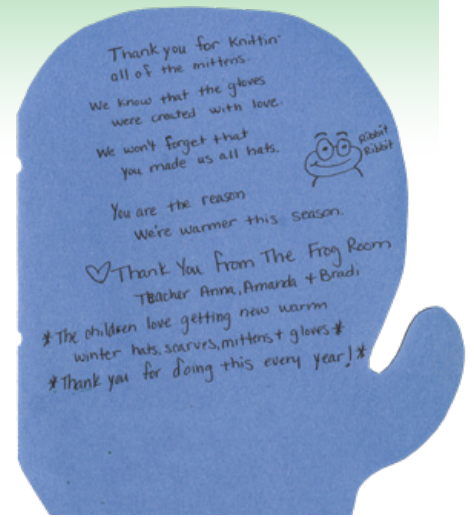 Thank you for Knittin'
all of the mittens.
We know that the gloves
were created with love.
We won't forget that
you made us all hats.
Ribbit
Ribbit
You are the reason
We're warmer this season.
♡Thank You From The Frog Room
Teacher Anna, Amanda + Bradi
*The children love getting new warm
winter hats, scarves, mittens + gloves*
*Thank you for doing this every year!*